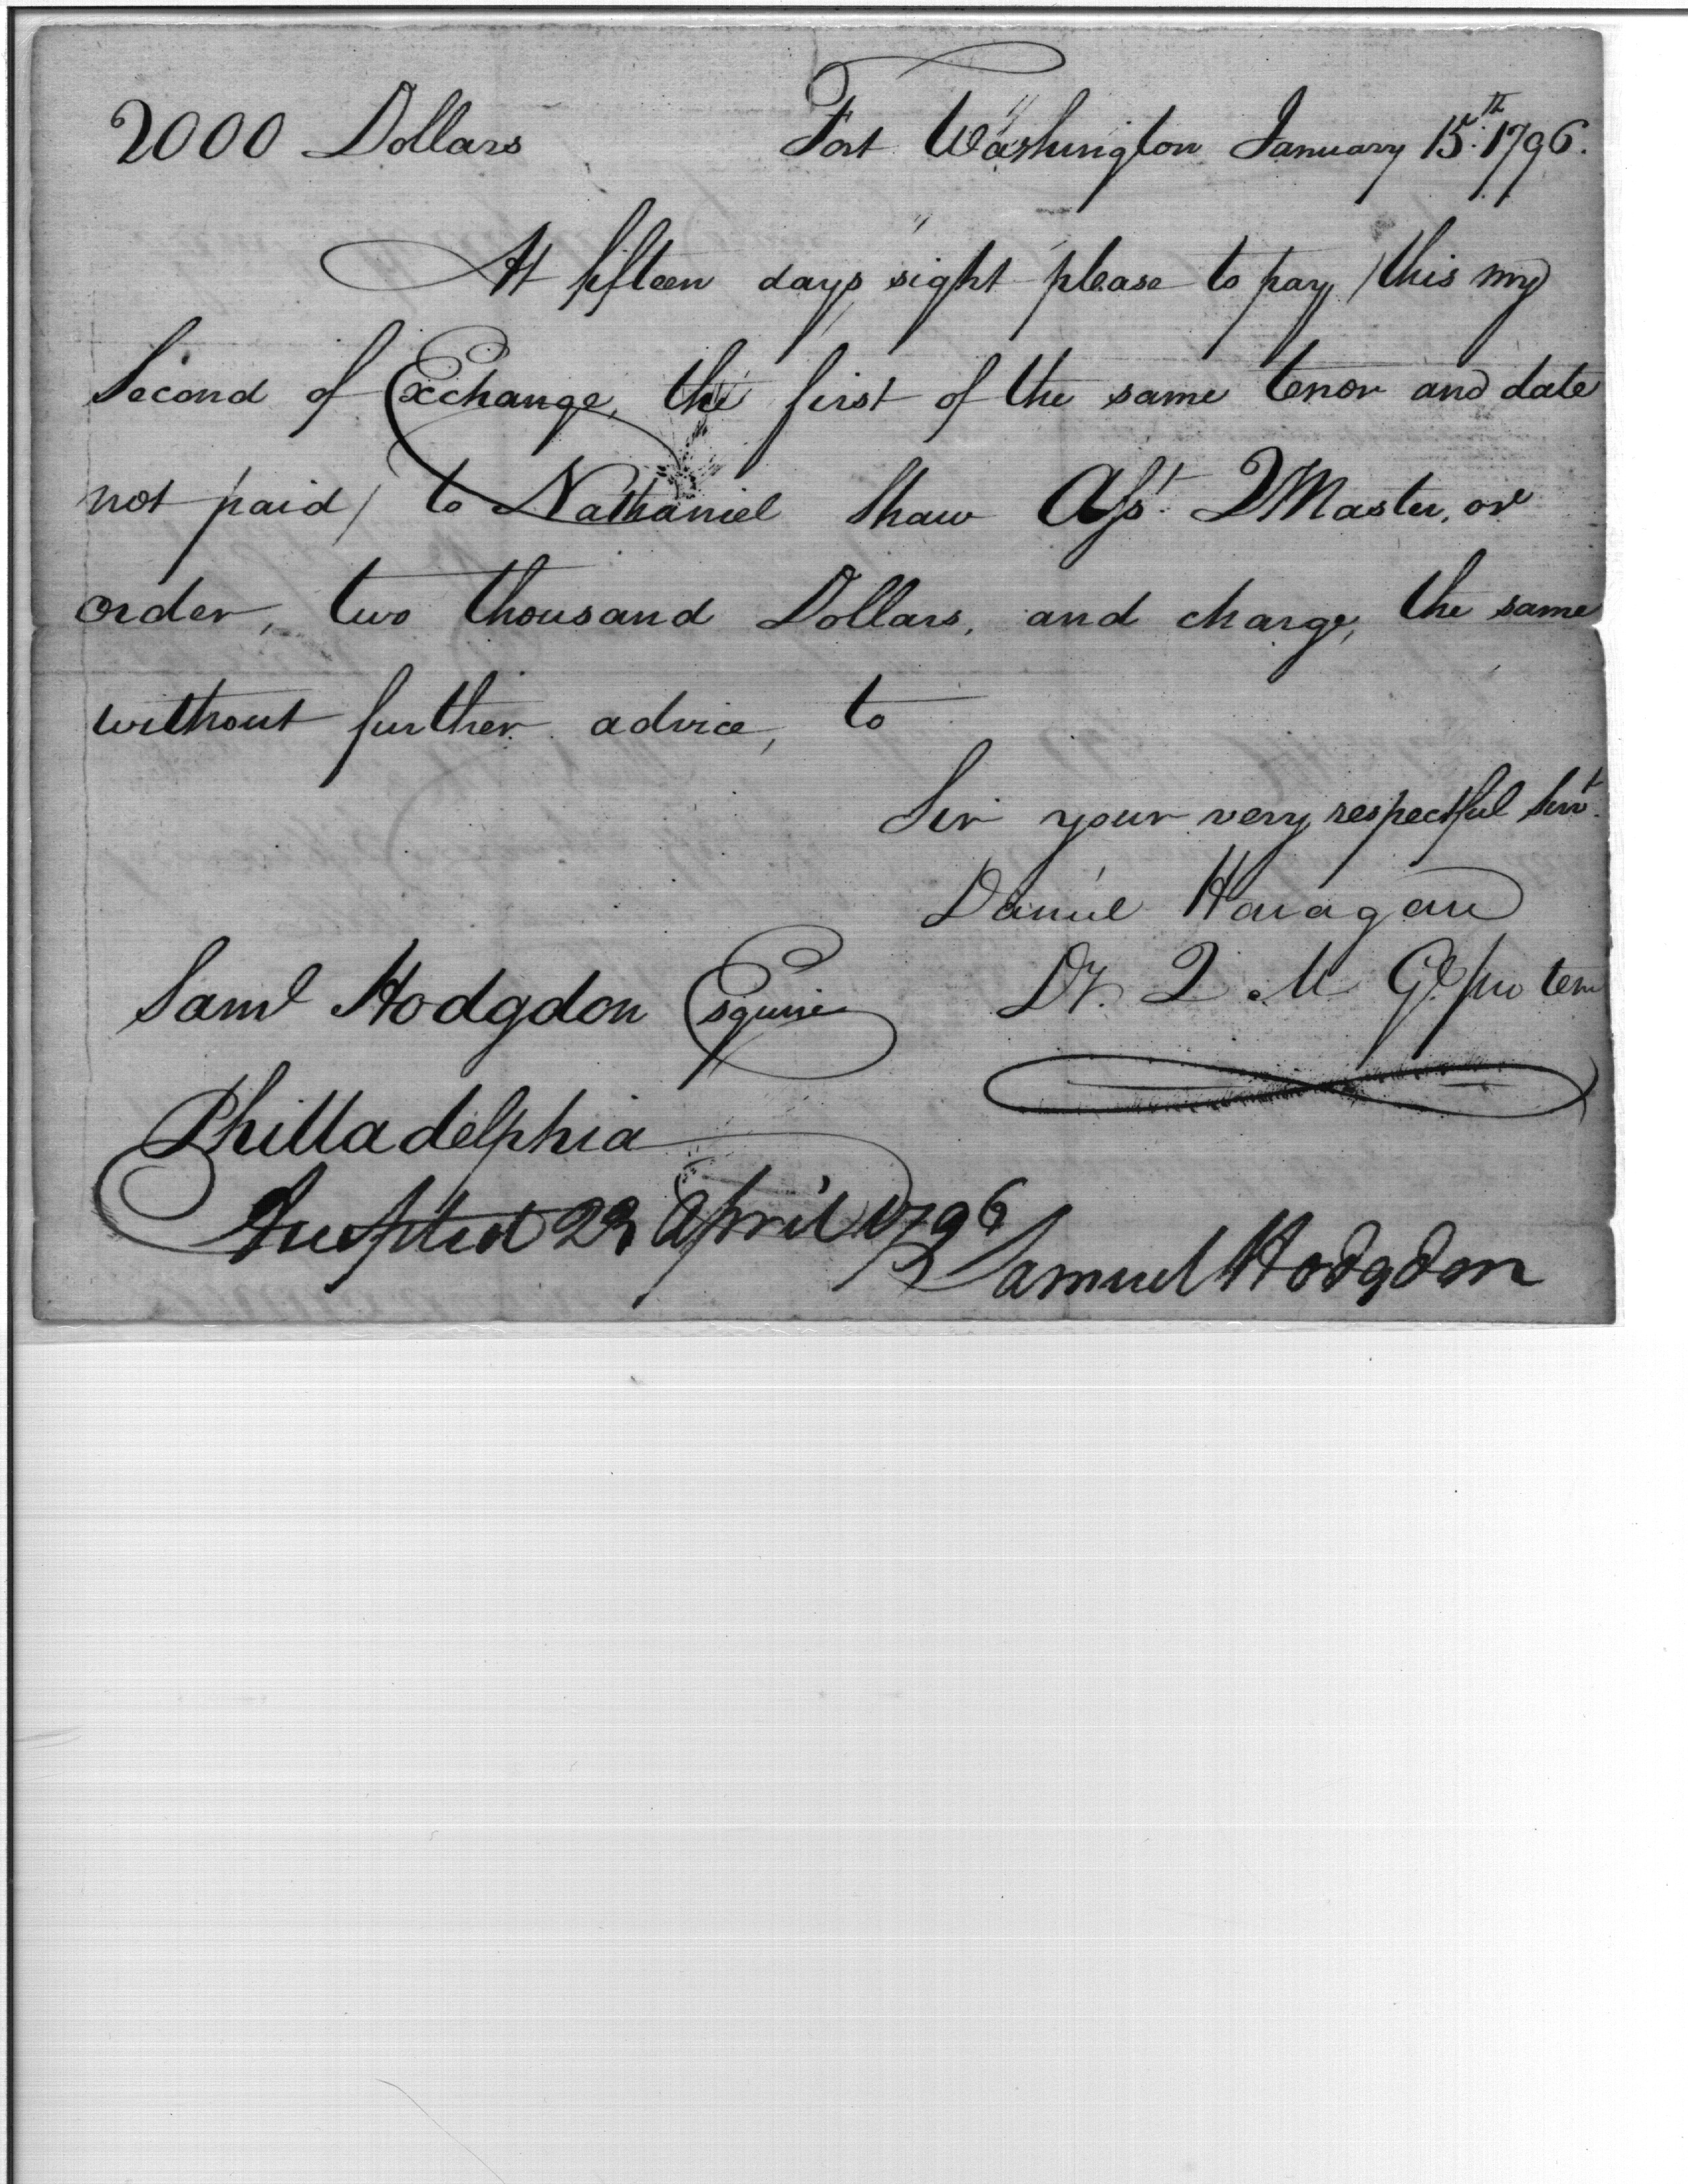 2000 Dollars Fort Washington January 15th. 1796.
At fifteen days sight please to pay (this my
Second of Exchange, the first of the same tenor and date
not paid) to Nathaniel Shaw Asst. QMaster, or
order, two thousand Dollars, and charge, the same
without further advice, to
Sir your very respectful Servt.
Daniel
Saml Hodgdon Esquire Dy. Q. M Gl. pro tem
Philladelphia
Accepted 23 April 1796
Samuel Hodgdon